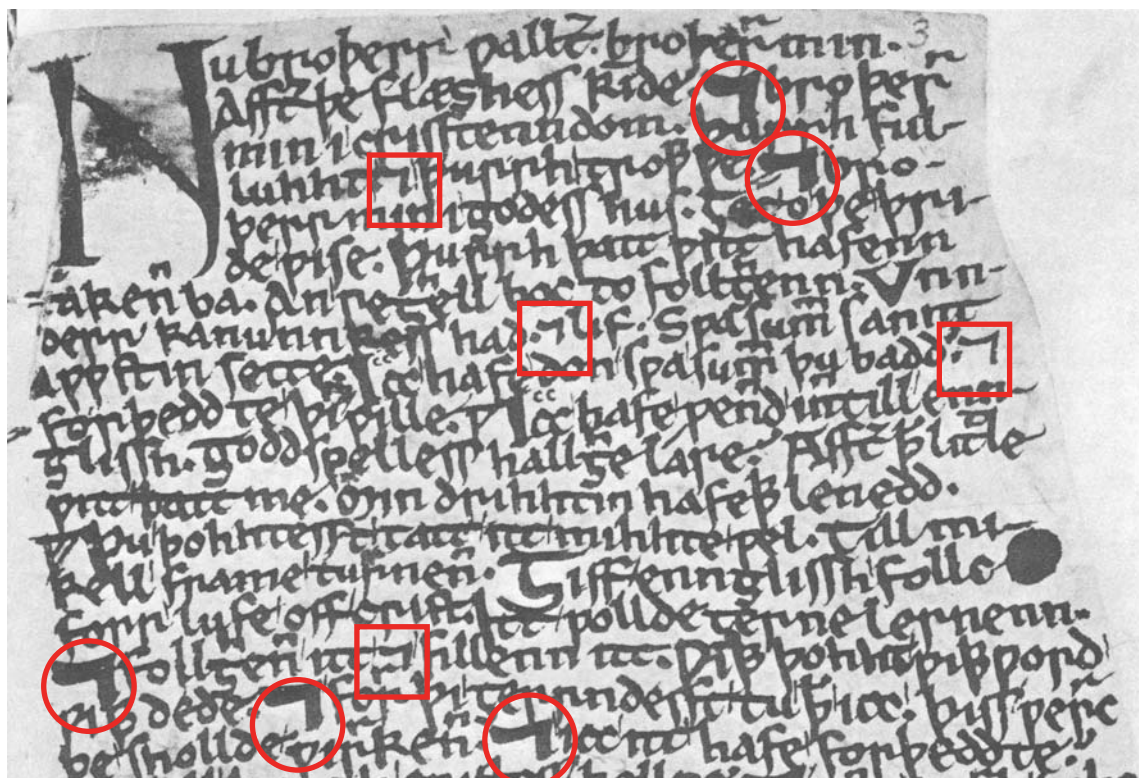 Nu broþerr ƿallt̄. broþerr min. 3
Afft̄ þe flæshess kide. ⁊ broþerr
min i crisstenndom. þurrh ful-
luhht ⁊ þurrh troƿþe. ⁊ bro-
þerr min i godess hus. ȝet o þe þri-
de ƿise. þurrh þatt ƿitt hafenn
takenn ba. An reȝhell boc to follȝhenn. Unn-
derr kanunnkess had. ⁊ lif. Sƿa sum̄ sannt
Aƿƿstin sette. Icc hafe don sƿa sum̄ þu badd. ⁊
forþedd te þin ƿille. Icc hafe ƿennd inntill enn-
glissh. goddspelless hallȝhe lare. Afft̄ þ̄ litle
ƿitt þatt me. Min drihhtin hafeþþ lenedd.
Þu þohhtesst tatt itt mihhte ƿel. Till mi-
kell frame turrnenn. Ȝiff ennglissh follc
forr lufe off crist. Itt ƿollde ȝerne lernenn.
⁊ follȝhenn itt ⁊ fillenn itt. Ƿiþþ þohht ƿiþþ ƿord
ƿiþþ dede. ⁊ forrþi ȝerrndesst tu þ̄ icc. þiss ƿerrc
þe shollde ƿirrkenn. ⁊ icc itt hafe forþedd te.